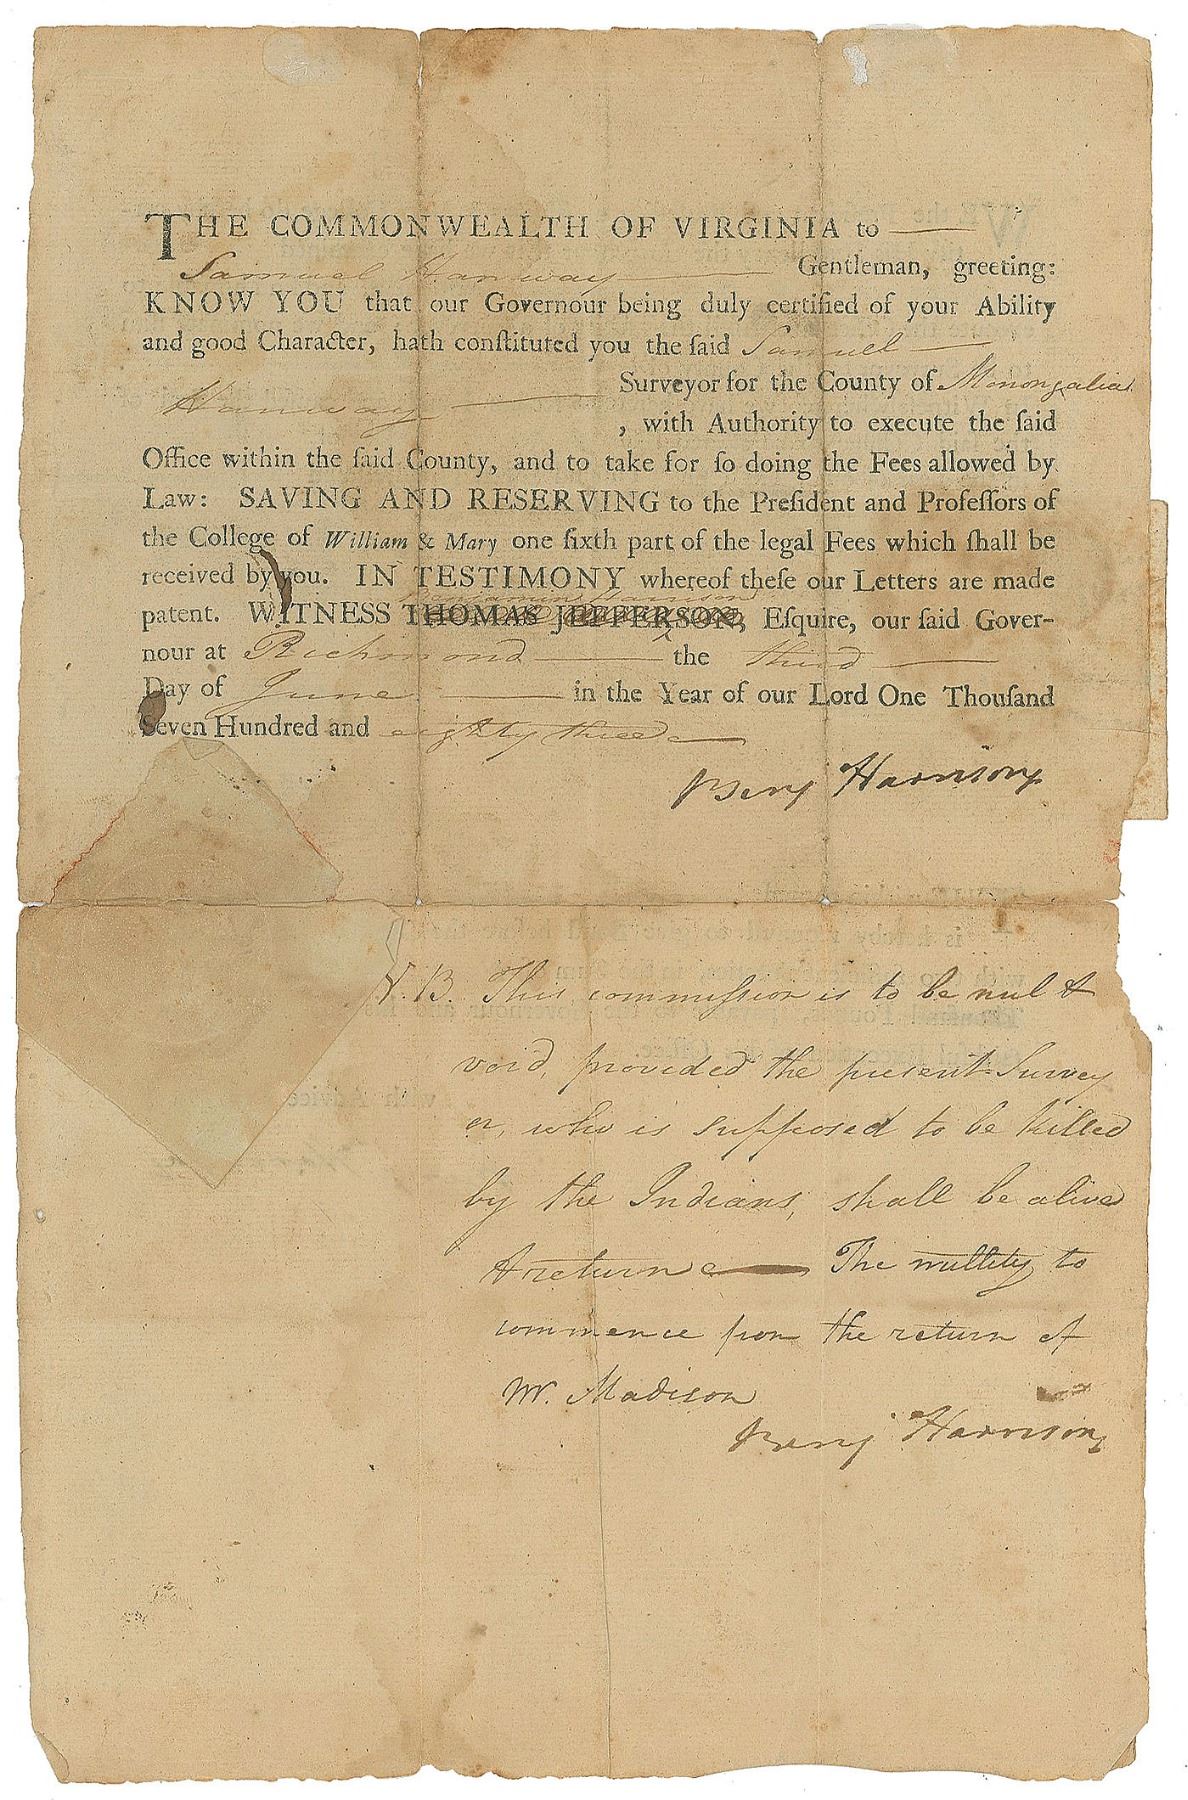 THE COMMONWEALTH OF VIRGINIA to
Samuel Hanway Gentleman, greeting:
KNOW YOU that our Governour being duly certified of your Ability
and good Character, hath conſtituted you the ſaid Samuel
Hanway Surveyor for the County of Monongalia
, with Authority to execute the ſaid
Office within the ſaid County, and to take for ſo doing the Fees allowed by
Law: SAVING AND RESERVING to the Preſident and Profeſſors of
the College of William & Mary one ſixth part of the legal Fees which ſhall be
received by you. IN TESTIMONY whereof theſe our Letters are made
Benjamin Harrison
patent. WITNESS THOMAS JEFFERSON, Eſquire, our ſaid Gover-
nour at Richmond the third
Day of June in the Year of our Lord One Thouſand
Seven Hundred and eighty three
Benj Harrison
N.B. This commiſsion is to be nul &
void, provided the present Survey
or, who is supposed to be killed
by the Indians, shall be alive
& return — The nullity to
commence from the return of
Mr. Madison
Benj Harrison